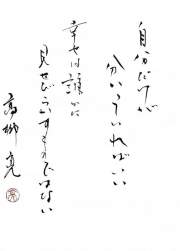 自分だけが
分かっていればいい
幸せは誰かに
見せびらかすものではない
高柳克